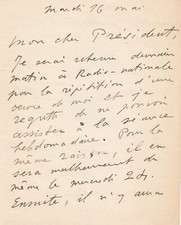 mardi 16 mai
Mon cher Président,
Je serai retenu demain
matin à Radio-nationale
par la répétition d'une
œuvre de moi et je
regrette de ne pouvoir
assister à la séance
hebdomadaire. Pour la
même raison, il en
sera malheureusement de
même le mercredi 24.
Ensuite, il n'y aura